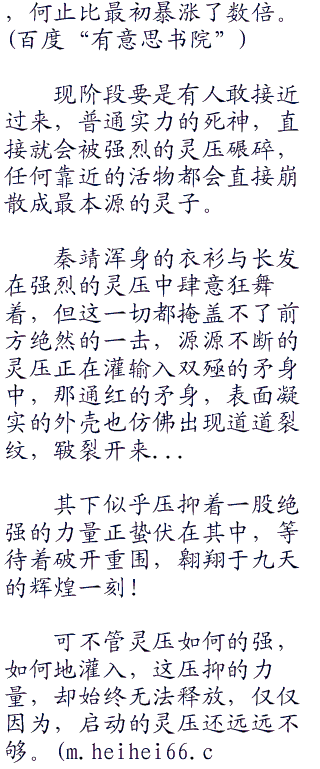 ，何止比最初暴涨了数倍。
(百度“有意思书院”)
现阶段要是有人敢接近
过来，普通实力的死神，直
接就会被强烈的灵压碾碎，
任何靠近的活物都会直接崩
散成最本源的灵子。
秦靖浑身的衣衫与长发
在强烈的灵压中肆意狂舞
着，但这一切都掩盖不了前
方绝然的一击，源源不断的
灵压正在灌输入双殛的矛身
中，那通红的矛身，表面凝
实的外壳也仿佛出现道道裂
纹，皲裂开来...
其下似乎压抑着一股绝
强的力量正蛰伏在其中，等
待着破开重围，翱翔于九天
的辉煌一刻！
可不管灵压如何的强，
如何地灌入，这压抑的力
量，却始终无法释放，仅仅
因为，启动的灵压还远远不
够。(m.heihei66.c